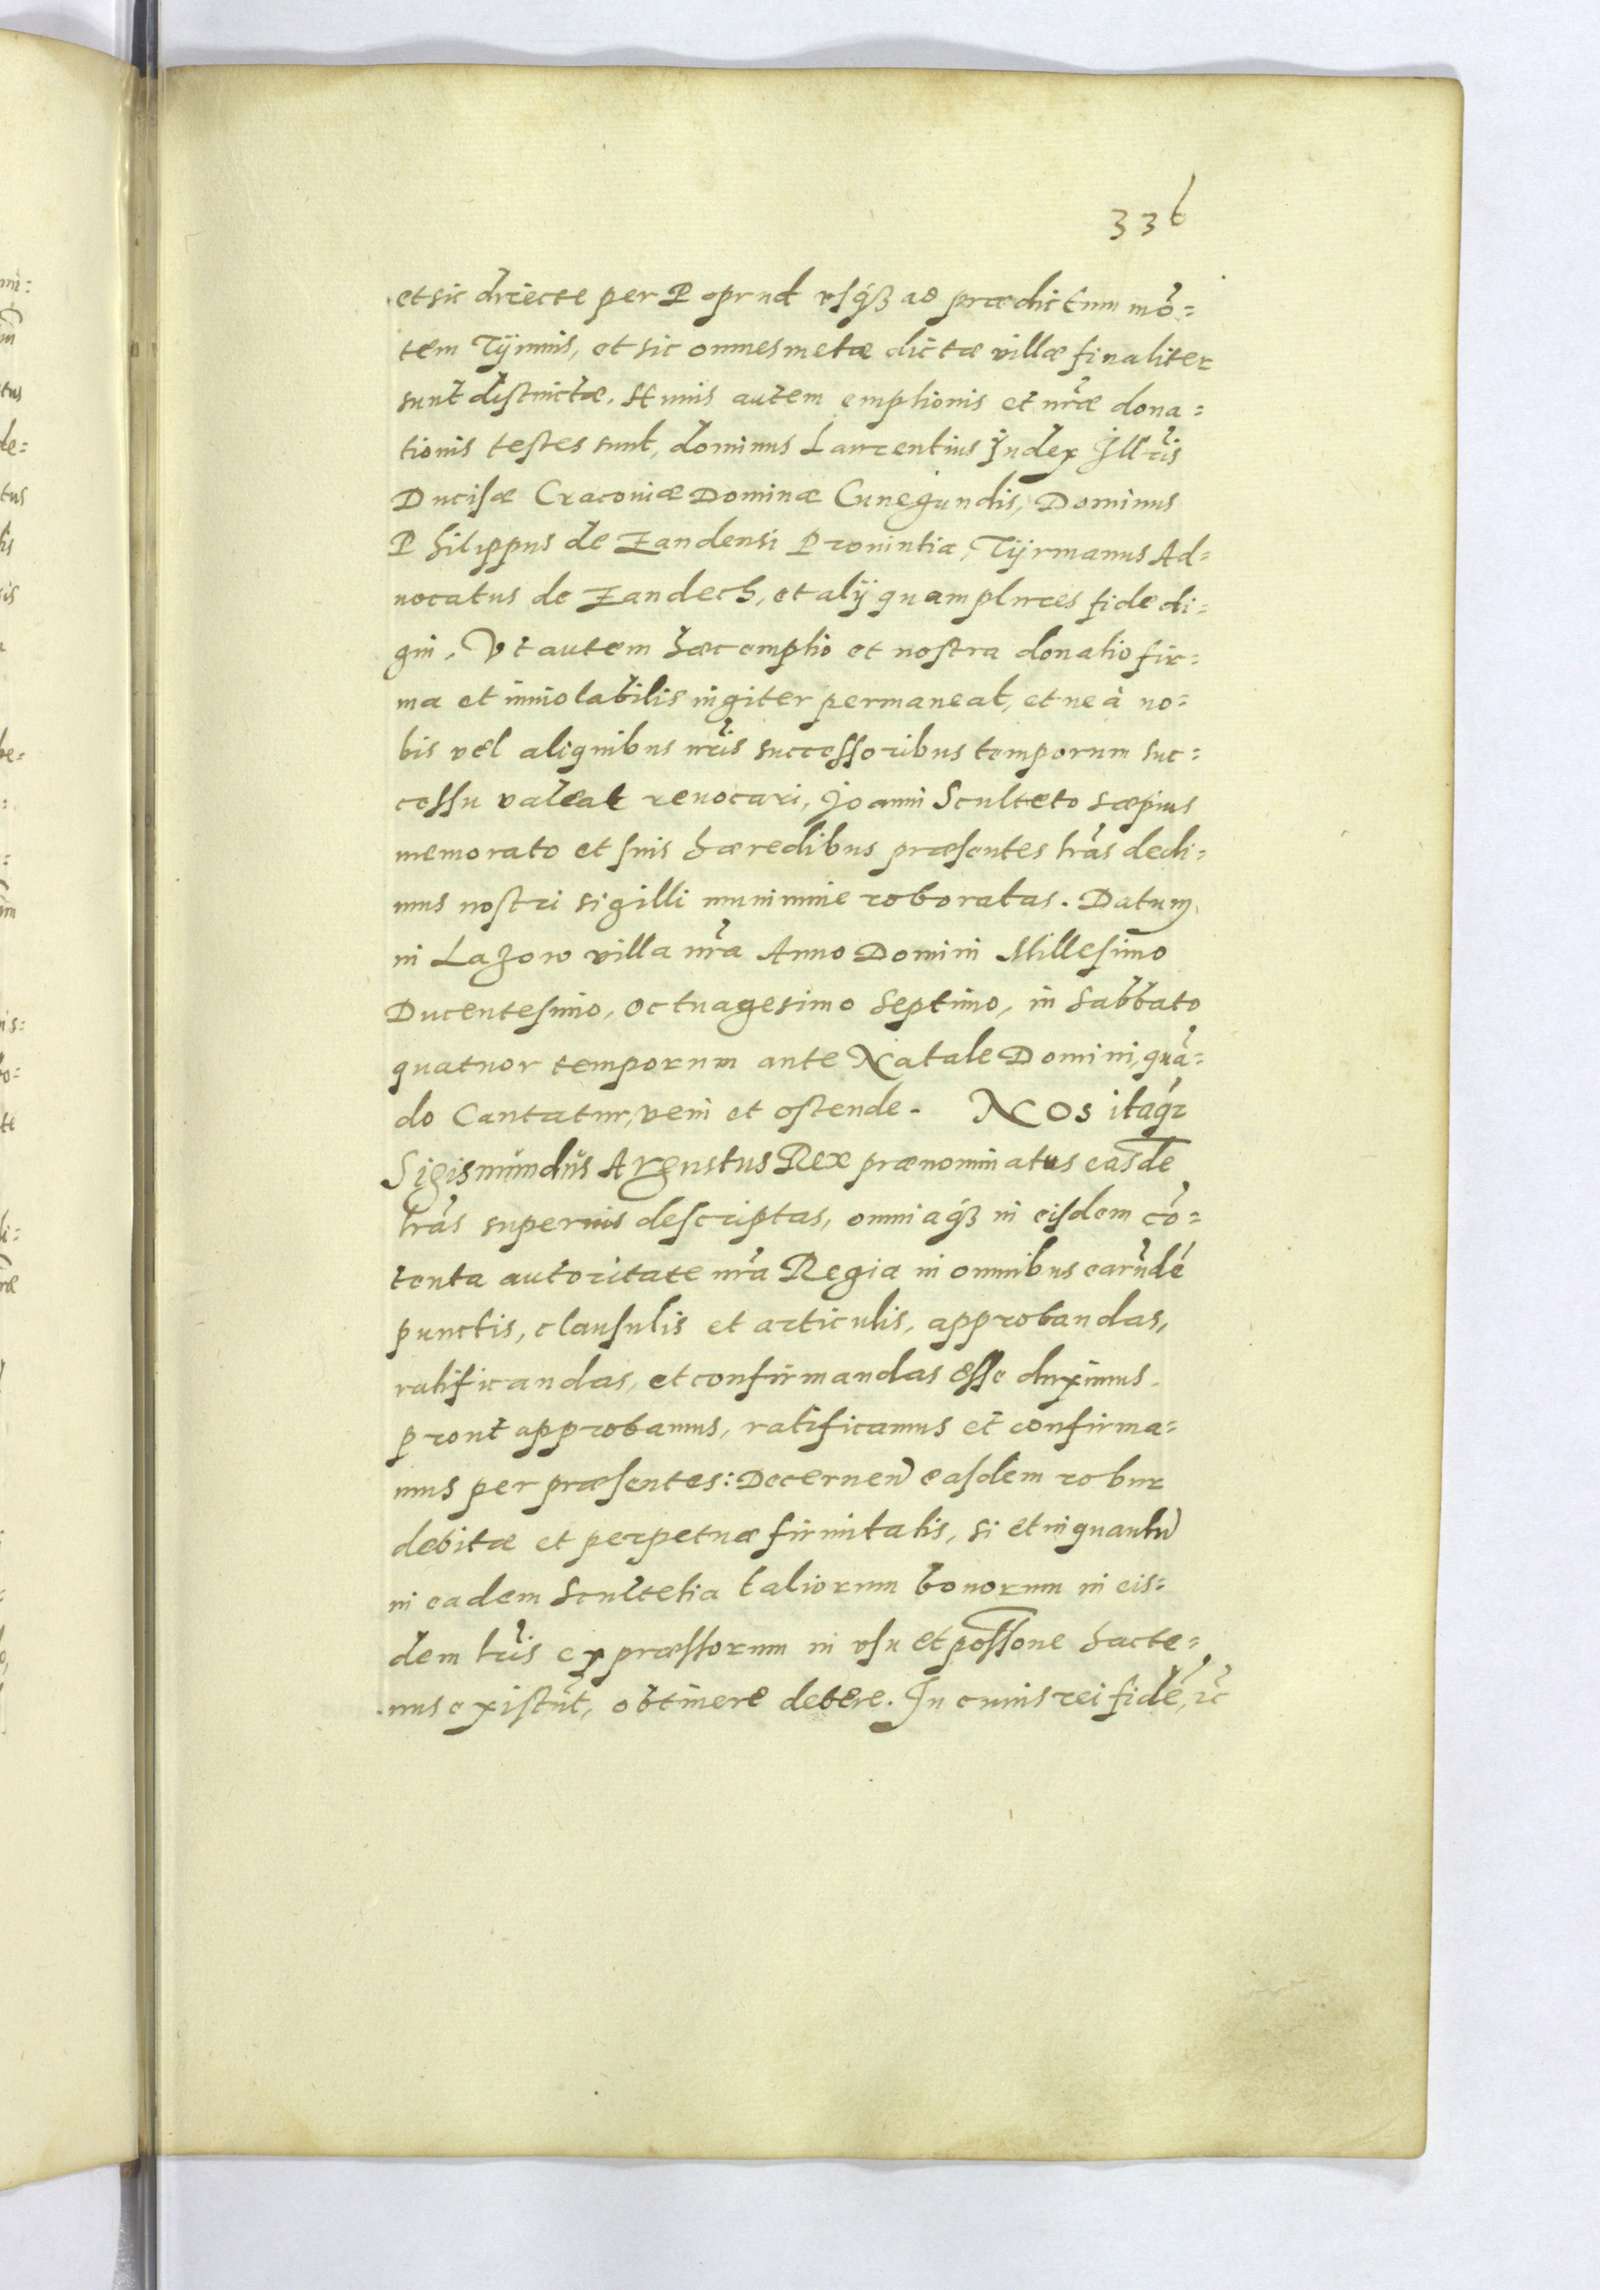 336
et sic directe per Poprud vsq́ꝫ ad prædictum mõ=
tem Tÿmnis, et sic omnes metæ dictæ villæ finaliter
sunt distinctæ. Huius autem emptionis et nr̃æ dona=
tionis testes sunt, dominus Laurentius Judex Illr̃is
Ducisæ Cracouiæ Dominæ Cunegundis, Dominus
Philippus de Zandensi Prouintia, Tÿrmanus Ad=
uocatus de Zandech, et alÿ quamplures fide di=
gni. Vt autem hæc emptio et nostra donatio fir=
ma et inuiolabilis iugiter permaneat, et ne à no=
bis vel aliquibus nr̃is successoribus temporum suc=
cessu valeat reuocari, Joanni Sculteto sæpius
memorato et suis hæredibus præsentes lr̃as dedi=
mus nostri sigilli munimine roboratas. Datum
in Lazow villa nr̃a Anno Domini Millesimo
Ducentesimo, octuagesimo septimo, in sabbato
quatuor temporum ante Natale Domini, quã=
do Cantatur, veni et ostende. Nos itaq́ꝫ
Sigismundus Augustus Rex prænominatus easdẽ
lr̃as superius descriptas, omniaq́ꝫ in eisdem cõ=
tenta autoritate nr̃a Regia in omnibus earũdẽ
punctis, clausulis et articulis, approbandas,
ratificandas, et confirmandas esse duximus.
prout approbamus, ratificamus et confirma=
mus per præsentes: Decernen̄ easdem robur
debitæ et perpetuæ firmitatis, si et inquantũ
in eadem Scultetia taliorum bonorum in eis=
dem lr̃is expræssorum in vsu et possõne hacte=
nus existũt, obtinere debere. In cuius rei fidẽ, ꝛc